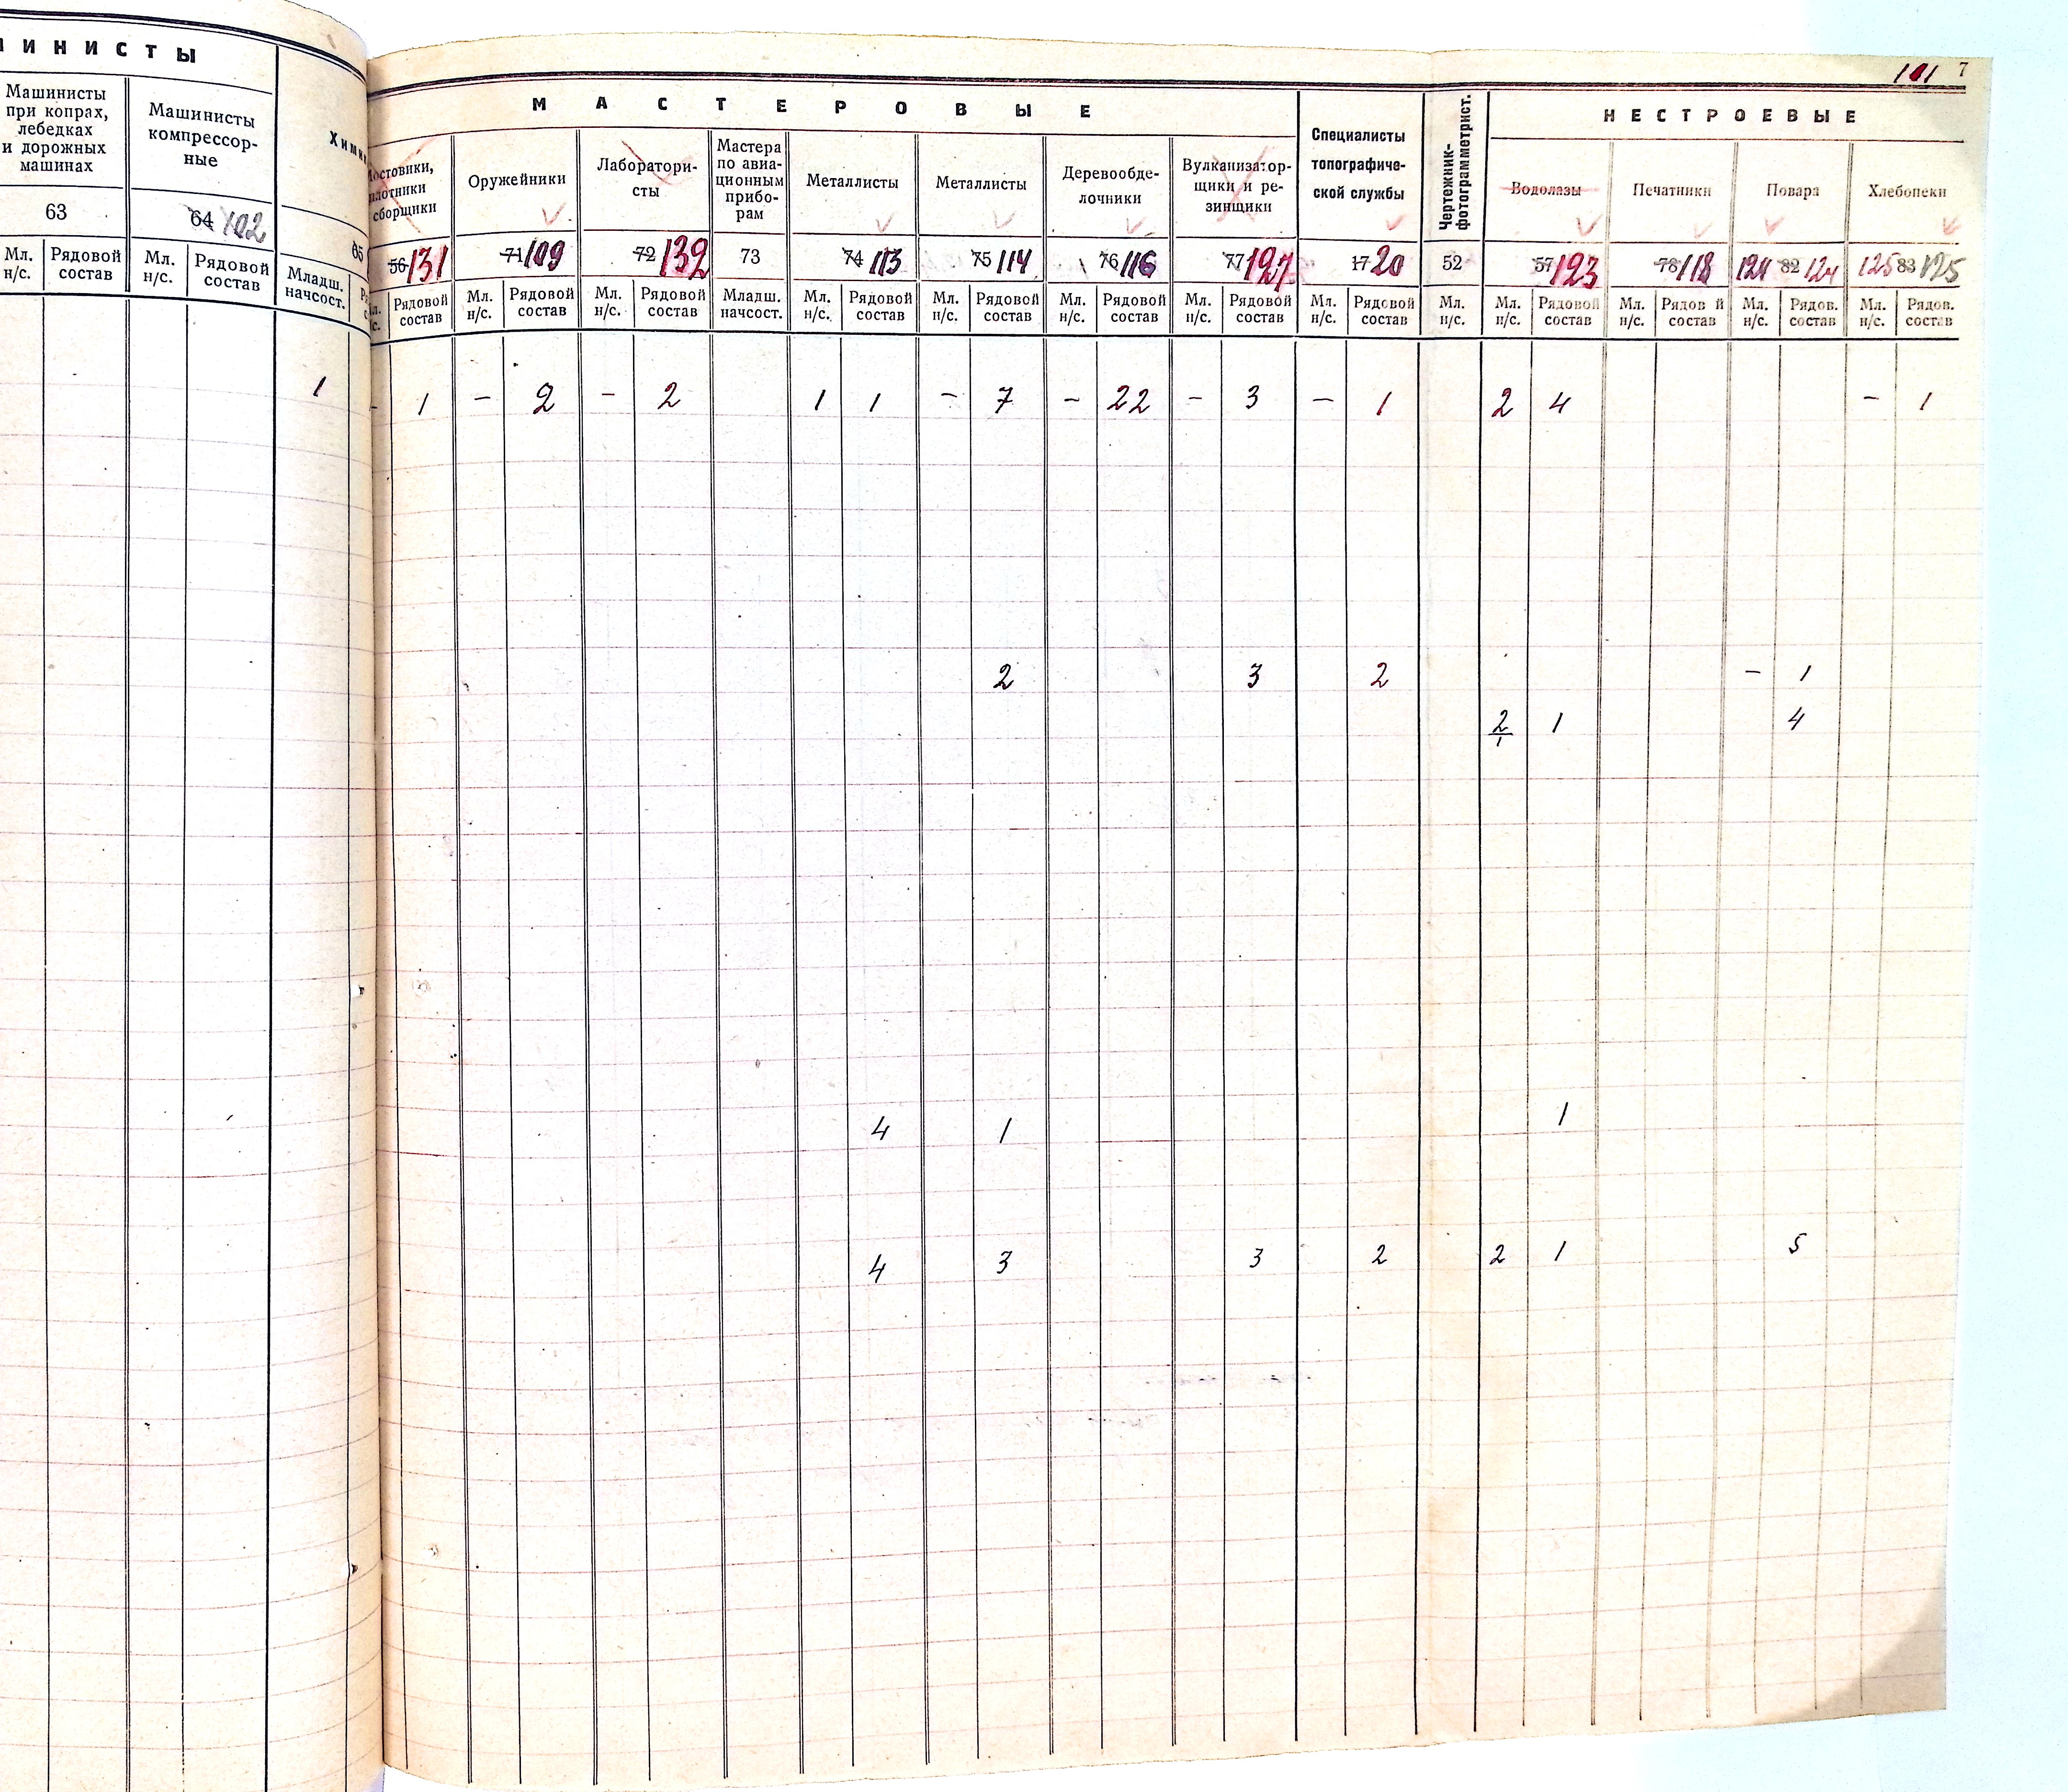 ИНИСТЫ
Машинисты
при копрах,
лебедках
и дорожных
машинах
Машинисты
компрессор-
ные
63
64 102
65
Мл.
н/с.
Рядовой
состав
Мл.
н/с.
Рядовой
состав
Младш.
начсост.
1
101 7
МАСТЕРОВЫЕ
Специалисты
топографиче-
ской службы
Чертежник-
фотограмметрист.
НЕСТРОЕВЫЕ
Мостовики,
плотники
сборщики
Оружейники
Лаборатори-
сты
Мастера
по авиа-
ционным
прибо-
рам
Металлисты
Металлисты
Деревообде-
лочники
Вулканизатор-
щики и ре-
зинщики
Водолазы
Печатники
Повара
Хлебопеки
56 131 71 109 72 132 73 74 113 75 114 76 116 77 127 17 20 52 57 123 78 118 124 82 124 125 83 125
Рядовой
состав
Мл.
н/с.
Рядовой
состав
Мл.
н/с.
Рядовой
состав
Младш.
начсост.
Мл.
н/с.
Рядовой
состав
Мл.
н/с.
Рядовой
состав
Мл.
н/с.
Рядовой
состав
Мл.
н/с.
Рядовой
состав
Мл.
н/с.
Рядовой
состав
Мл.
н/с.
Мл.
н/с.
Рядовой
состав
Мл.
н/с.
Рядов й
состав
Мл.
н/с.
Рядов.
состав
Мл.
н/с.
Рядов.
состав
- 1 - 2 - 2 1 1 - 7 - 22 - 3 - 1 2 4 - 1
2 3 2 - 1
2/1 1 4
4 1 1
4 3 3 2 2 1 5